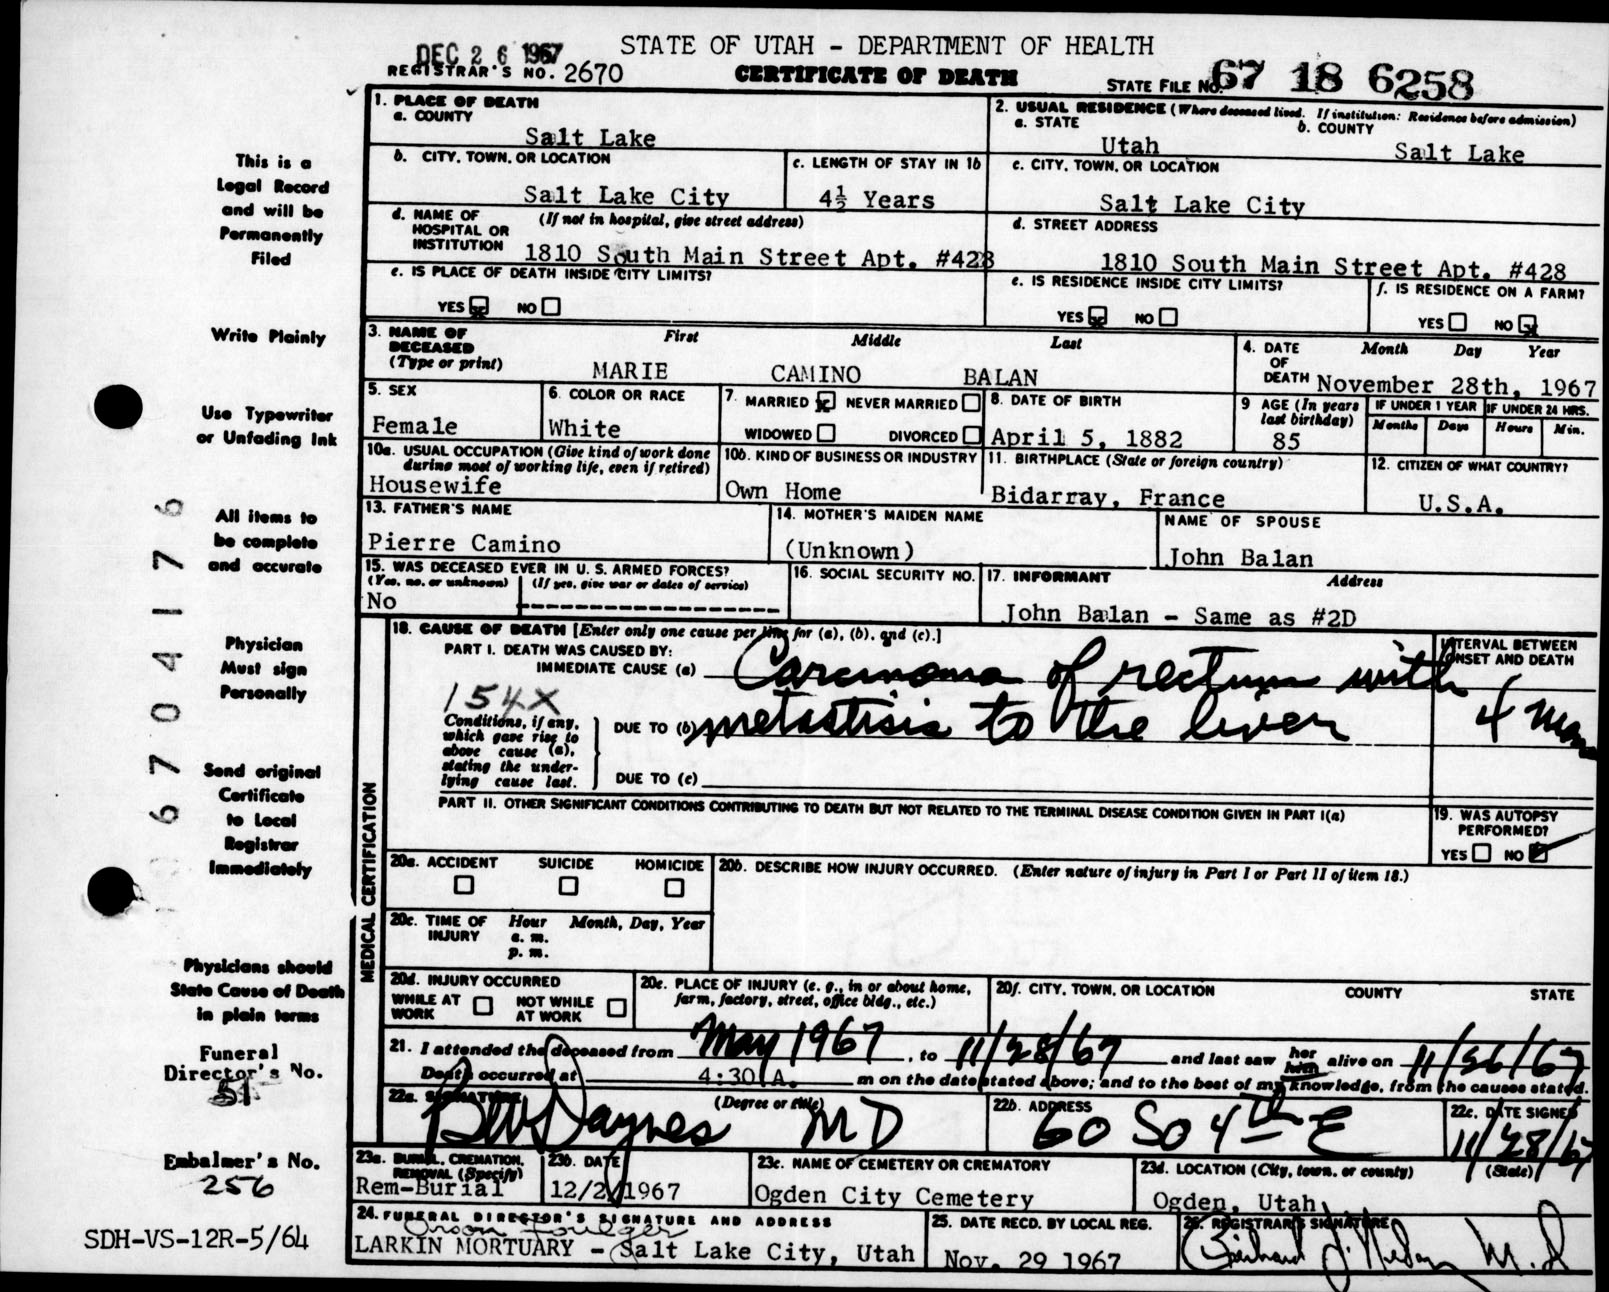 DEC 26 1967
STATE OF UTAH - DEPARTMENT OF HEALTH
REGISTRAR'S NO. 2670
CERTIFICATE OF DEATH
STATE FILE NO. 67 18 6258
This is a
Legal Record
and will be
Permanently
Filed
Write Plainly
Use Typewriter
or Unfading Ink
All items to
be complete
and accurate
Physician
Must sign
Personally
Send original
Certificate
to Local
Registrar
Immediately
Physicians should
State Cause of Death
in plain terms
Funeral
Director's No.
51
Embalmer's No.
256
SDH-VS-12R-5/64
67041776
1. PLACE OF DEATH
a. COUNTY
Salt Lake
b. CITY, TOWN, OR LOCATION
Salt Lake City
c. LENGTH OF STAY IN 1b
4½ Years
d. NAME OF HOSPITAL OR INSTITUTION (If not in hospital, give street address)
1810 South Main Street Apt. #428
e. IS PLACE OF DEATH INSIDE CITY LIMITS?
YES X NO
2. USUAL RESIDENCE (Where deceased lived. If institution: Residence before admission)
a. STATE
Utah
b. COUNTY
Salt Lake
c. CITY, TOWN, OR LOCATION
Salt Lake City
d. STREET ADDRESS
1810 South Main Street Apt. #428
e. IS RESIDENCE INSIDE CITY LIMITS?
YES X NO
f. IS RESIDENCE ON A FARM?
YES NO X
3. NAME OF DECEASED (Type or print)
First Middle Last
MARIE CAMINO BALAN
4. DATE OF DEATH Month Day Year
November 28th, 1967
5. SEX
Female
6. COLOR OR RACE
White
7. MARRIED X NEVER MARRIED
WIDOWED DIVORCED
8. DATE OF BIRTH
April 5, 1882
9 AGE (In years last birthday)
85
IF UNDER 1 YEAR IF UNDER 24 HRS.
Months Days Hours Min.
10a. USUAL OCCUPATION (Give kind of work done during most of working life, even if retired)
Housewife
10b. KIND OF BUSINESS OR INDUSTRY
Own Home
11. BIRTHPLACE (State or foreign country)
Bidarray, France
12. CITIZEN OF WHAT COUNTRY?
U.S.A.
13. FATHER'S NAME
Pierre Camino
14. MOTHER'S MAIDEN NAME
(Unknown)
NAME OF SPOUSE
John Balan
15. WAS DECEASED EVER IN U. S. ARMED FORCES?
(Yes, no, or unknown) (If yes, give war or dates of service)
No
16. SOCIAL SECURITY NO.
17. INFORMANT Address
John Balan - Same as #2D
MEDICAL CERTIFICATION
18. CAUSE OF DEATH [Enter only one cause per line for (a), (b), and (c).]
PART I. DEATH WAS CAUSED BY:
IMMEDIATE CAUSE (a) Carcinoma of rectum with
154X
Conditions, if any, which gave rise to above cause (a), stating the underlying cause last.
DUE TO (b) metastisis to the liver
DUE TO (c)
INTERVAL BETWEEN ONSET AND DEATH
4 mon
PART II. OTHER SIGNIFICANT CONDITIONS CONTRIBUTING TO DEATH BUT NOT RELATED TO THE TERMINAL DISEASE CONDITION GIVEN IN PART I(a)
19. WAS AUTOPSY PERFORMED?
YES NO
20a. ACCIDENT SUICIDE HOMICIDE
20b. DESCRIBE HOW INJURY OCCURRED. (Enter nature of injury in Part I or Part II of item 18.)
20c. TIME OF INJURY Hour Month, Day, Year
a. m.
p. m.
20d. INJURY OCCURRED
WHILE AT WORK NOT WHILE AT WORK
20e. PLACE OF INJURY (e. g., in or about home, farm, factory, street, office bldg., etc.)
20f. CITY, TOWN, OR LOCATION COUNTY STATE
21. I attended the deceased from May 1967, to 11/28/67 and last saw her him alive on 11/26/67
Death occurred at 4:30 A. m on the date stated above; and to the best of my knowledge, from the causes stated.
22a. SIGNATURE (Degree or title)
BW Daynes MD
22b. ADDRESS
60 So 4th E
22c. DATE SIGNED
11/28/67
23a. BURIAL, CREMATION, REMOVAL (Specify)
Rem-Burial
23b. DATE
12/2/1967
23c. NAME OF CEMETERY OR CREMATORY
Ogden City Cemetery
23d. LOCATION (City, town, or county) (State)
Ogden, Utah
24. FUNERAL DIRECTOR'S SIGNATURE AND ADDRESS
LARKIN MORTUARY - Salt Lake City, Utah
25. DATE RECD. BY LOCAL REG.
Nov. 29 1967
26. REGISTRAR'S SIGNATURE
M.D